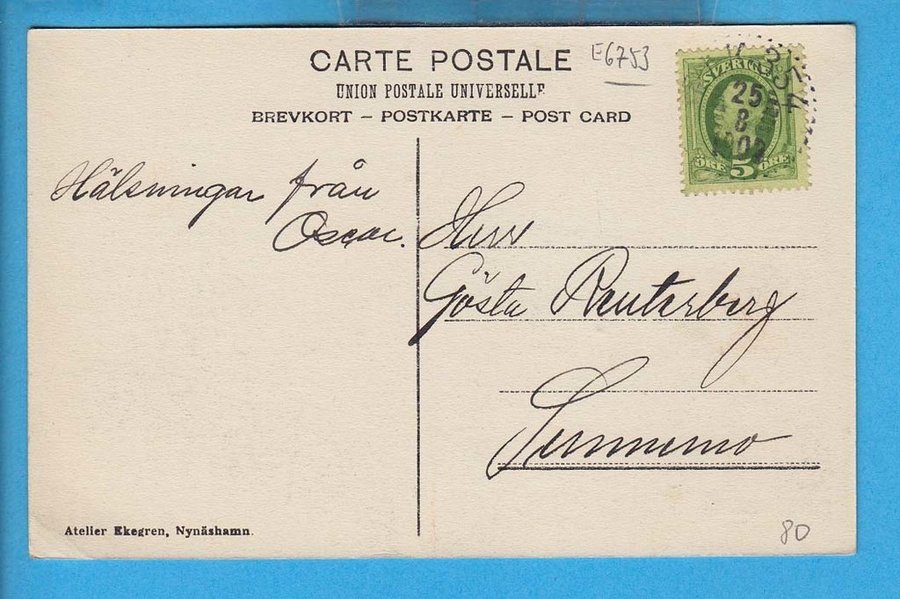 CARTE POSTALE
UNION POSTALE UNIVERSELLE
BREVKORT – POSTKARTE – POST CARD
E6753
SVERIGE
5 ÖRE ÖRE
25
8
Hälsningar från
Oscar.
Herr
Gösta Reuterberg
Sunnemo
Atelier Ekegren, Nynäshamn.
80